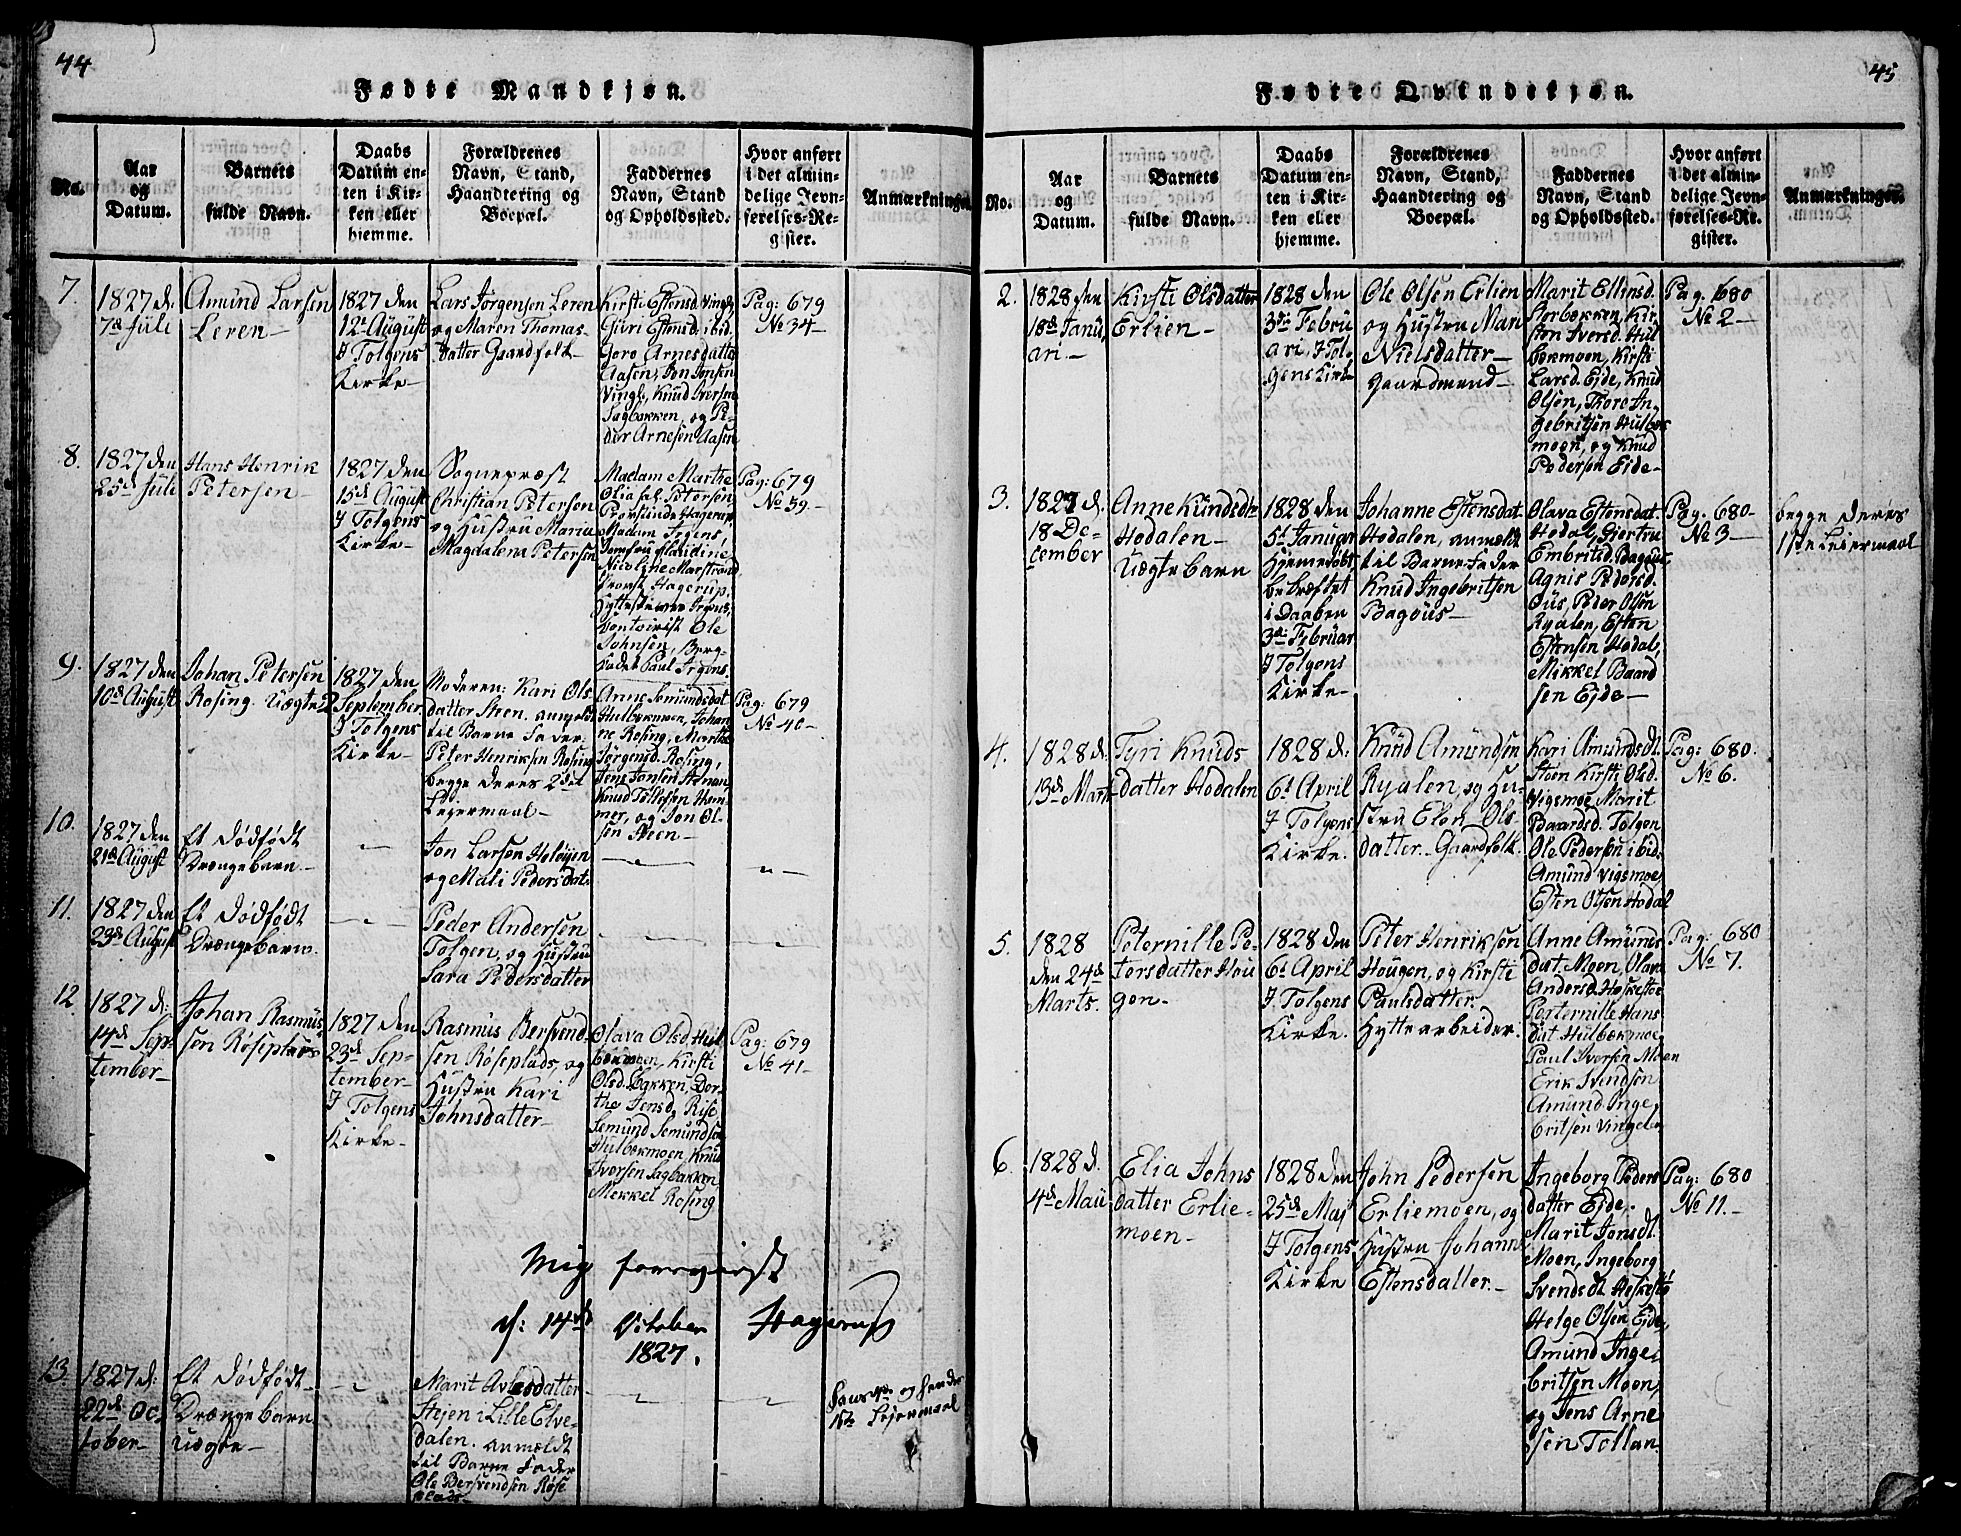 44
Fødte Mandkjøn.
No.
Aar
og
Datum.
Barnets
fulde Navn.
Daabs
Datum en-
ten i Kir-
ken eller
hjemme.
Forældrenes
Navn, Stand,
Haandtering og
Boepæl.
Faddernes
Navn, Stand
og Opholdssted.
Hvor anført
i det almin-
delige Jevn-
førelses-Re-
gister.
Anmærkninger.
7.
1827 d:
7d Juli
Amund Larsen
Leren-
1827 den
12t August
I Tolgens
Kirke-
Lars Jörgensen Leren
og Maren Thomas-
datter Gaardfolk-
Kirsti Estensd. Vingel,
Guri Estensd. ibid.
Goro Arnesdatter
Aasen, Jon Jonsen
Vingl., Knud Iversen
Sagbakken, og Pe-
der Arnesen Aasen
Pag: 679
No 34-
8.
1827 den
25d Juli
Hans Henrik
Petersen-
1827 den
15d August
I Tolgens
Kirke-
Sognepræst
Christian Petersen
og Hustru Maria
Magdalena Petersen
Madam Marthe
Olia sal. Petersen,
Provstinde Hagerup,
Madam Irgens,
Jomfru Claudine
Nicoline Marstrand
Provst Hagerup,
Hytteskriver Irgens,
Ole
Johnsen, Berg-
kadet Paul Irgens.
Pag: 679
No 39.-
9.
1827 den
10d August
Johan Petersen
Rosing. Uægte
1827 den
2 September
I Tolgens
Kirke-
Moderen: Kari Ols-
datter Steen. anmeldt
til Barne Fader:
Peter Henriksen Rosing
begge deres 2det
Leiermaal-
Anne Semundsdat.
Hulbækmoen, Johan-
ne Rosing, Marthe
Jörgensd. Rosing,
Jens Jansen
Knud Tollefsen Ham-
mer, og Jon Ol-
sen Neen-
Pag: 679
No 40-
10.
1827 den
21d August
Et dödfödt
Drængebarn.-
Jon Larsen Holöyen
og Mali Pedersdat:
11.
1827 den
23d August
Et dödfödt
Drængebarn.
Peder Andersen
Tolgen, og Hustru
Sara Pedersdatter
12
1827 d:
14d Sep-
tember-
Johan Rasmus
sen Röseplads
1827 den
23d Sep-
tember-
I Tolgens
Kirke-
Rasmus Bersvend-
sen Röseplads, og
Hustru Kari
Johnsdatter-
Olava Olsd. Hul-
bækmoen, Kirsti
Olsd. Bakken, Dor-
the Jensd. Rise
Semund Semundsen
Hulbækmoen, Knud
Iversen Sagbakken,
Mekkel Rosing
Pag: 679
No 41-
Mig foreviist
d: 14de October Hagerup
1827.
13.
1827 d:
22d Oc-
tober-
Et dödfödt
Drængebarn
uægte-
Marit
Stejen i Lille Elve-
dalen. anmeldt
til Barne Fader
Ole Bersvendsen Röse
plads-
hans og hendes
1ste Lejermaal
45
Fødte Qvindekjøn.
No.
Aar
og
Datum.
Barnets
fulde Navn.
Daabs
Datum en-
ten i Kir-
ken eller
hjemme.
Forældrenes
Navn, Stand,
Haandtering og
Boepæl.
Faddernes
Navn, Stand
og Opholdssted.
Hvor anført
i det almin-
delige Jevn-
førelses-Re-
gister.
Anmærkninger.
2.
1828 den
18d Janu-
ari-
Kirsti Olsdatter
Erlien-
1828 den
3die Febru
ari, I Tol-
gens Kirke
Ole Olsen Erlien
og Hustru Mari
Nielsdatter-
Gaardmand-
Marit Ellinsd.
Storbækken, Kir-
sten Iversd. Hul-
bekmoen, Kirsti
Larsd. Ejde, Knud
Olsen, Thore In-
gebritsen Hulbek-
moen, og Knud
Pedersen Eide-
Pag. 680
No 2-
3.
1827 d.
18 De-
cember
Anne Kundsdtr
Hodalen-
Uægte barn
1828 den
5t Januar
Hjemmedöbt
bekræftet
i Daaben
3die Februar
I Tolgens
Kirke-
Johanne Estensdat.
Hodalen, anmeldt
til Barne Fader
Knud Ingebritsen
Bagöus-
Olava Estensdat.
Hodal, Giertru
Embritsd. Bagöus,
Agnis Pedersd.
Öus, Peder Olsen
Ryalen, Esten
Estensen Hodal,
Mikkel Baard
sen Ejde-
Pag. 680-
No 3-
begge deres
1ste Leiermaal
4.
1828 d.
13d Marti
Tyri Knuds
datter Hodalen
1828 d:
6t April
I Tolgens
Kirke.
Knud Amundsen
Ryalen, og Hu-
stru Elen Ols-
datter- Gaardfolk.
Kari Amundsdt.
Steen Kirsti Olsd.
Vigsmoe Marit
Baardsd. Tolgen
Ole Pedersen ibid.
Amund Vigsmoe,
Esten Olsen Hodal
Pag: 680.
No 6.
5.
1828
den 24d
Marts.
Peternille Pe-
tersdatter Hou
gen-
1828 den
6t April
I Tolgens
Kirke.
Peter Henriksen
Hougen, og Kirsti
Paulsdatter.
Hyttearbeider.
Anne Amunds
dat. Moen, Olava
Andersd.
Perternille Hans
dat Hulbækmoe
Paul Iversen Moen
Erik Svendsen
Amund Inge-
britsen Vingeln
Pag: 680
No 7.
6.
1828 d.
4d Maii
Elia Johns
datter Erlie-
moen-
1828 den
25d Maj
I Tolgens
Kirke
John Pedersen
Erliemoen, og
Hustru Johanne
Estensdatter.-
Ingeborg Peders
datter Ejde,
Marit Jonsdt.
Moen, Ingeborg
Svendsdt
Helge Olsen Ejde,
Amund Inge-
britsen Moen,
og Jens Arne
sen Tollan
Pag: 680
No 11.-